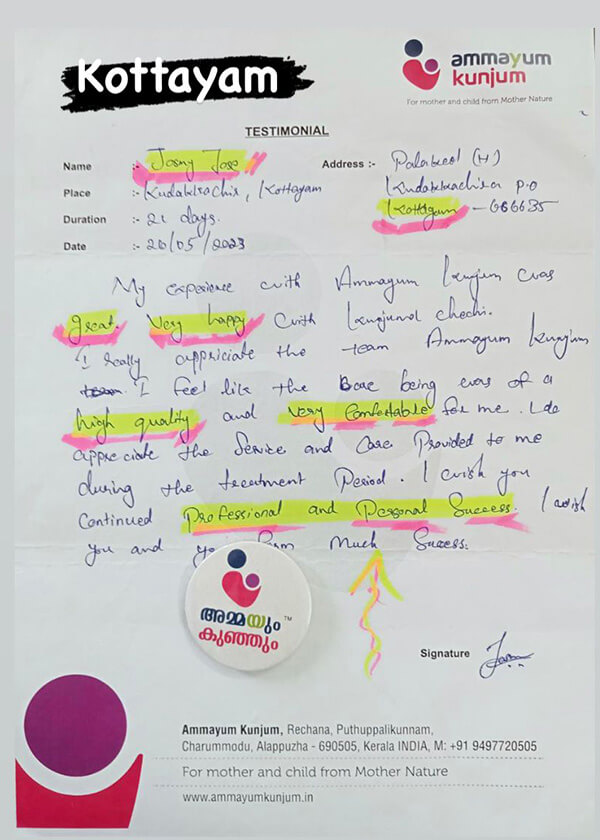 Kottayam
ammayum
kunjum
For mother and child from Mother Nature
TESTIMONIAL
Name :- Josmy Jose
Address :- (H)
Place :- Kottayam
P.O
Duration :- 21 days.
Kottayam - 686635
Date :- 20/05/2023
My experience with Ammayum kunjum was
great. Very happy with chechi.
I really appriciate the team Ammayum kunjum
I feel like the care being was of a
high quality and very Comfortable for me. I do
appreciate the Service and Care Provided to me
during the treatment Period. I wish you
Continued Professional and Personal Success. I wish
you and Much Sucess.
അമ്മയും TM
കുഞ്ഞും
Signature
Ammayum Kunjum, Rechana, Puthuppalikunnam,
Charummodu, Alappuzha - 690505, Kerala INDIA, M: +91 9497720505
For mother and child from Mother Nature
www.ammayumkunjum.in